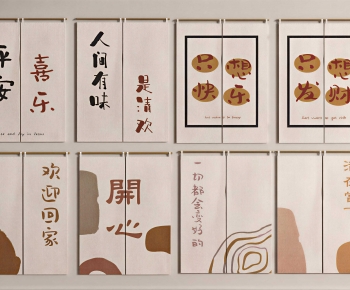 平安
喜乐
人间有味
是清欢
只想
快乐
只想
发财
欢迎回家
開心
一切都会变好的